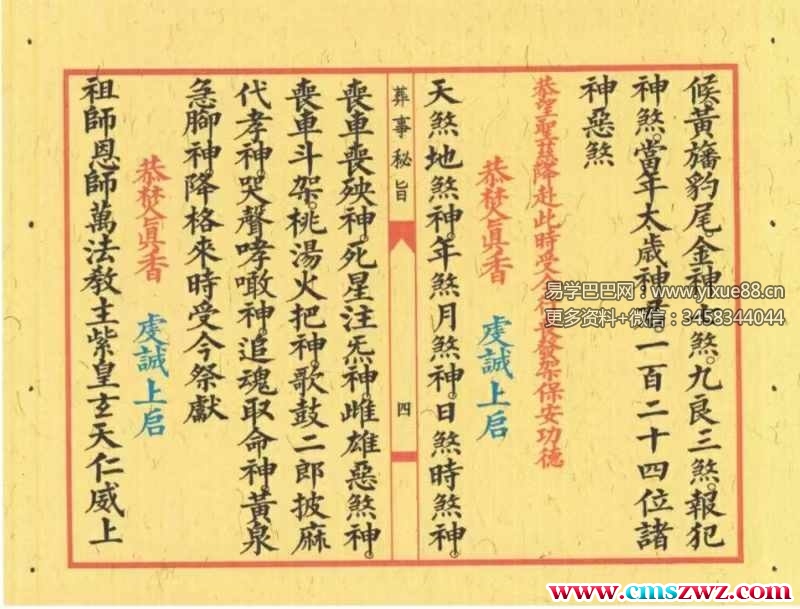 候。黃旛豹尾。金神七煞。九良三煞。報犯
神煞。當年太歲神君。一百二十四位諸
神惡煞
恭望聖慈降赴此時受今
發架保安功德
恭焚眞香 虔誠上启
天煞地煞神。年煞月煞神。日煞時煞神。
葬事秘旨
四
喪車喪殃神。死星注炁神。雌雄惡煞神。
喪車斗架。桃湯火把神。歌鼓二郎披麻
代孝神。哭聲哮噉神。追魂取命神。黃泉
急腳神。降格來時受今祭獻
恭焚眞香 虔誠上启
祖師恩師萬法教主紫皇玄天仁威上
易学巴巴网：www.yixue88.cn
更多资料+微信：3458344044
www.cmszwz.com